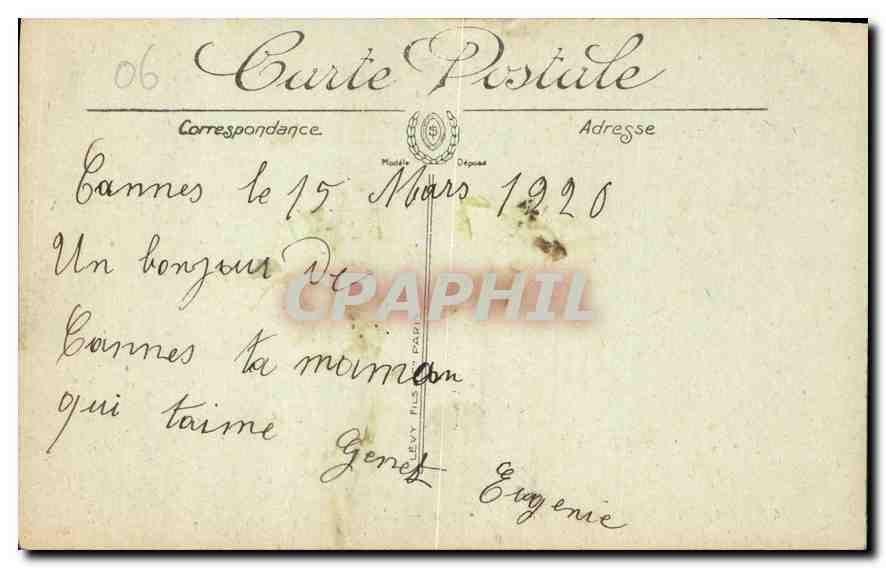 06
Carte Postale
Correspondance
Adresse
Modèle Déposé
Cannes le 15 Mars 1920
Un bonjour De
CPAPHIL
Cannes ta maman
qui taime
Genet Eugenie
LÉVY FILS PARIS